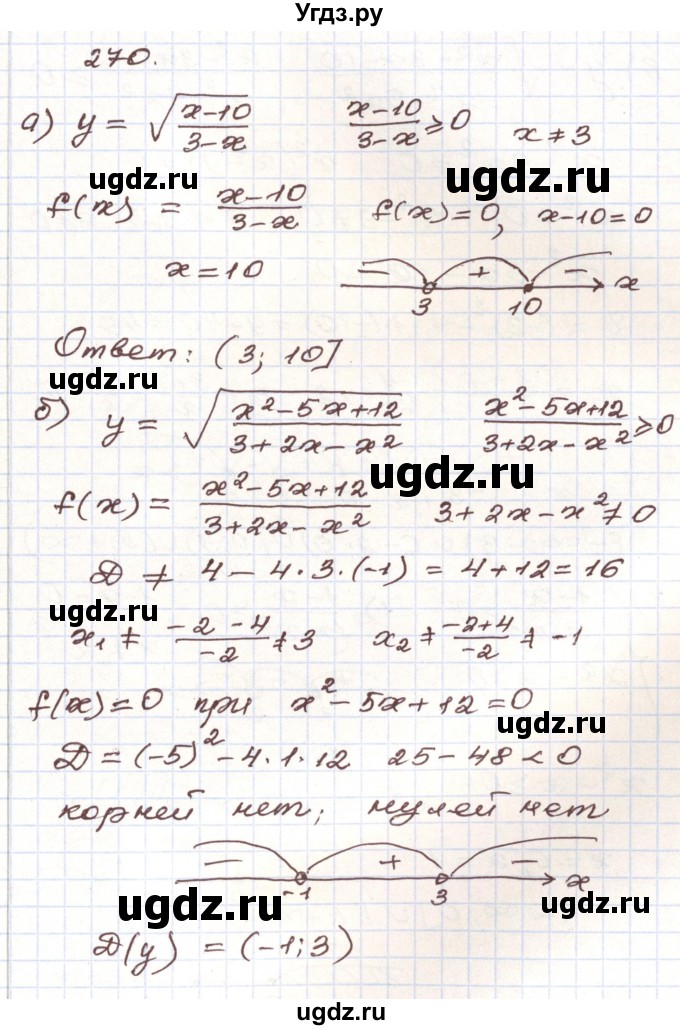 Угдз.ру
270.
а) y = √((x-10)/(3-x))   (x-10)/(3-x) ≥ 0   x ≠ 3
ugdz.ru ugdz.ru
f(x) = (x-10)/(3-x)   f(x) = 0, x-10=0
x = 10   − 3 + 10 − x
Ответ: (3; 10]
ugdz.ru
б) y = √((x²-5x+12)/(3+2x-x²))   (x²-5x+12)/(3+2x-x²) ≥ 0
ugdz.ru
f(x) = (x²-5x+12)/(3+2x-x²)   3+2x-x² ≠ 0
D ≠ 4 - 4·3·(-1) = 4+12 = 16
ugdz.ru
x₁ ≠ (-2-4)/(-2) ≠ 3   x₂ ≠ (-2+4)/(-2) ≠ -1
f(x) = 0 при x²-5x+12=0
D = (-5)²-4·1·12   25-48<0
ugdz.ru ugdz.ru
корней нет; нулей нет
− -1 + 3 − x
ugdz.ru ugdz.ru
D(y) = (-1; 3)
ugdz.ru